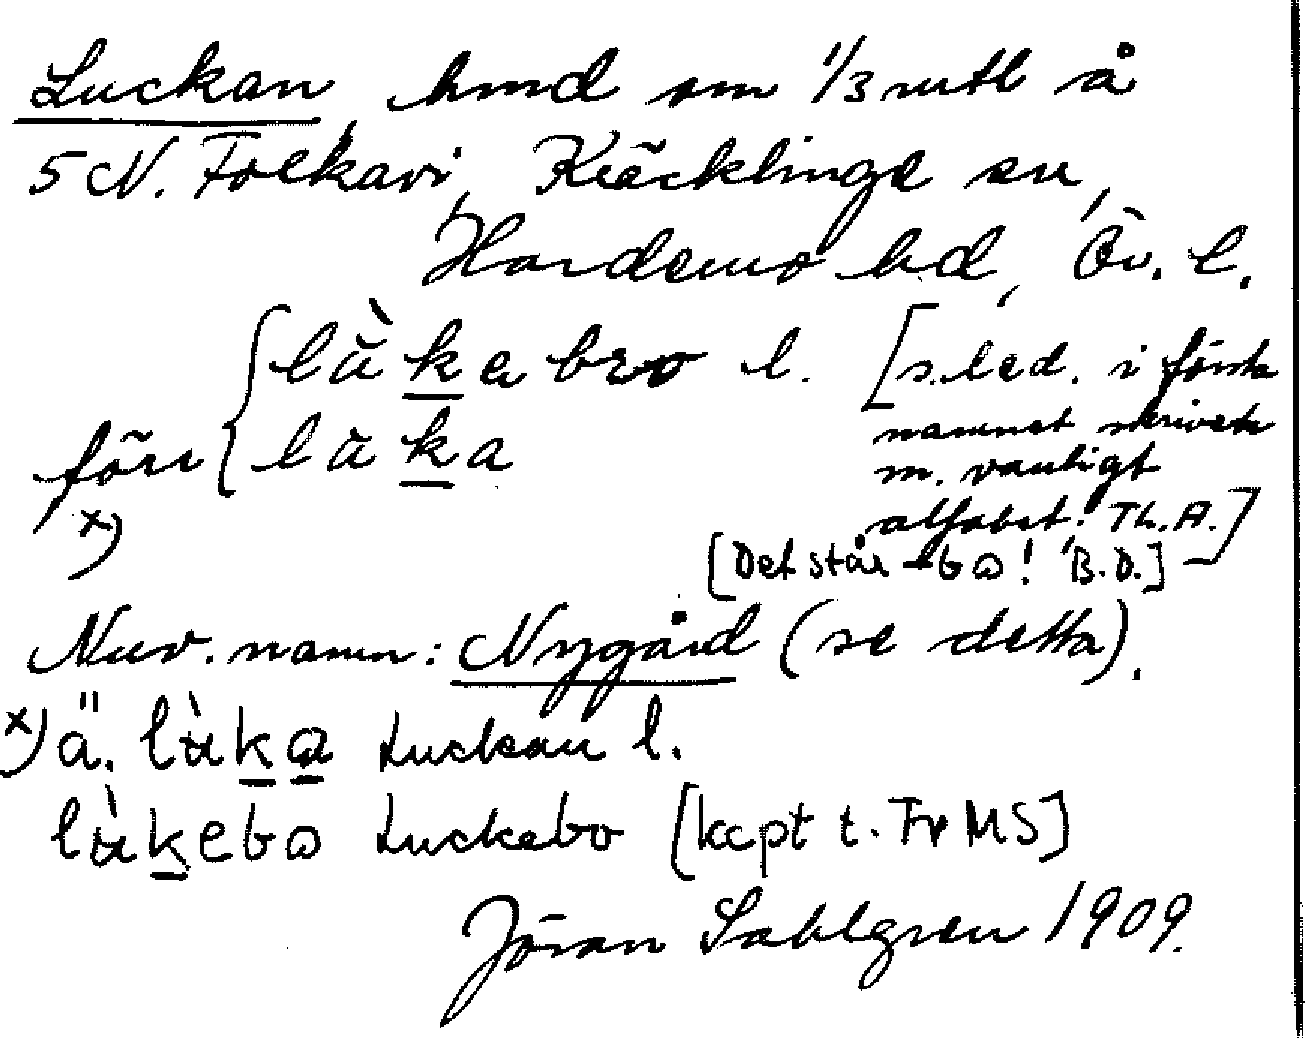 Luckan, hmd om 1/3 mtl å
5 N. Folkavi, Kräcklinge sn,
Hardemo hd, Öv. l.
förr { lὰkabro l. [s.led. i första
lὰka namnet skrivet
m. vanligt
x) alfabet! Th.A.]
[Det står -bɷ! B.D.]
Nuv. namn: Nygård (se detta).
x) ä. lùkɷ Luckan l.
lùkebɷ Luckebo [kcpt t. Fv MS]
Jöran Sahlgren 1909.